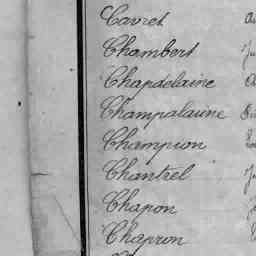 Cavret
Chambert
Chapdelaine
Champalaune
Champion
Chantrel
Chapon
Chapron